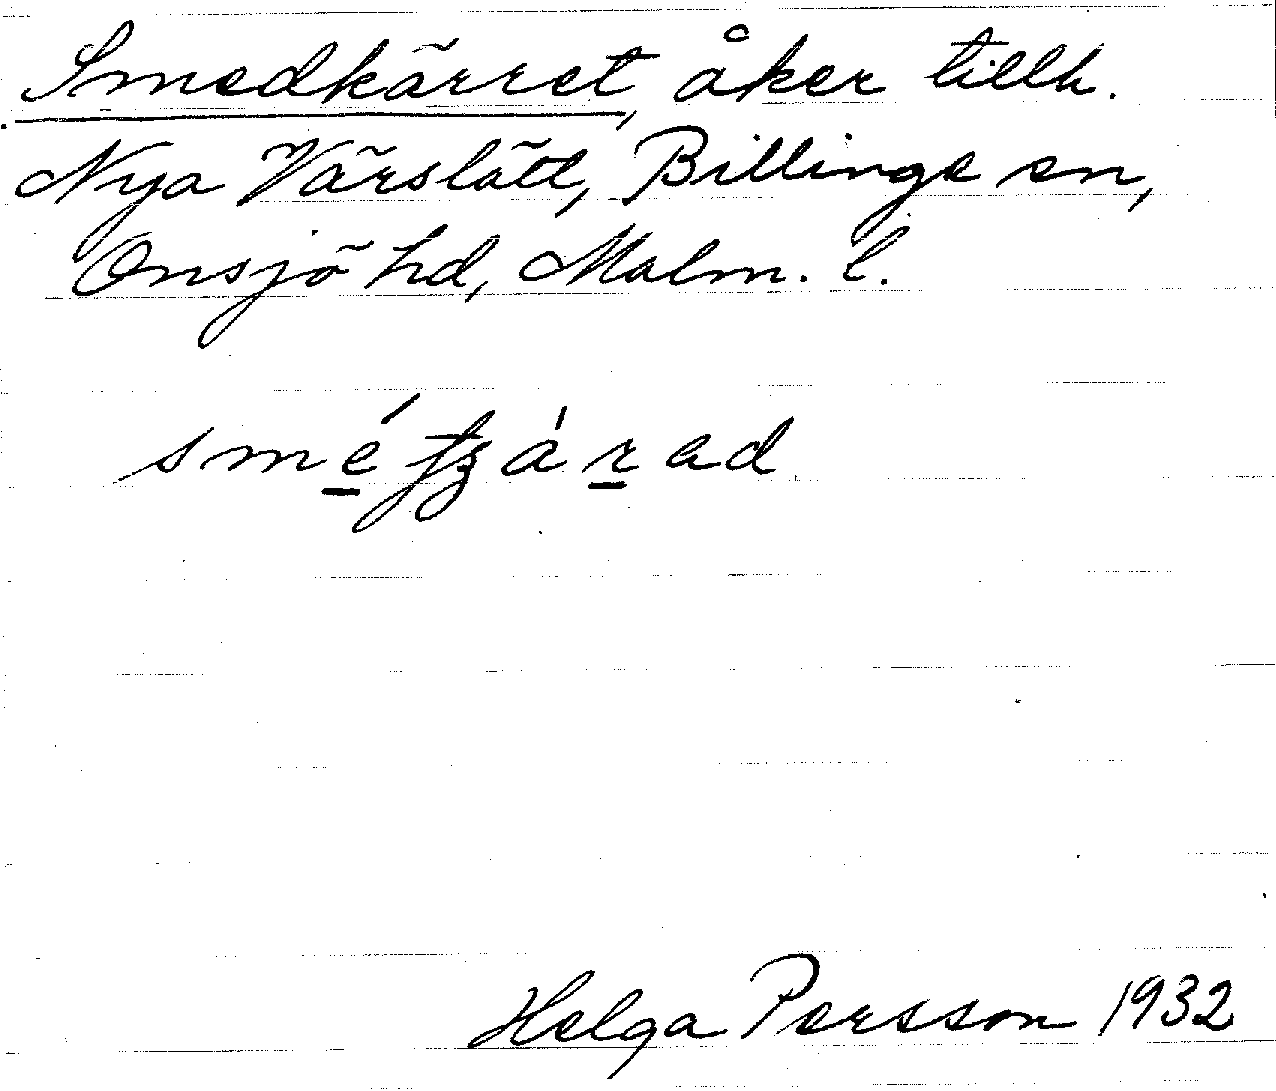 Smedkärret, åker tillh.
Nya Värslätt, Billinge sn,
Onsjö hd, Malm. l.
Helga Persson 1932